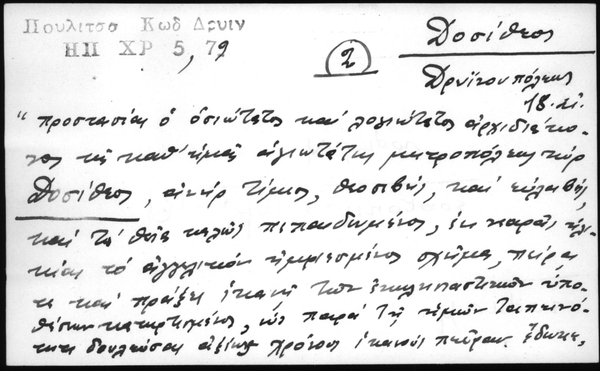 Πουλίτσα Κωδ Δρυιν
ΗΠ ΧΡ 5, 79
(2)
Δοσίθεος
Δρυϊνουπόλεως
18. αἰ.
" προστασίαι ὁ ὁσιώτατος καὶ λογιώτατος ἀρχιδιάκο-
νος τῆς καθ' ἡμᾶς ἁγιωτάτης μητροπόλεως κὺρ
Δοσίθεος, ἀνὴρ τίμιος, θεοσεβής, καὶ εὐλαβής,
καὶ τὰ θεῖα καλῶς πεπαιδευμένος, ἐκ νεαρᾶς ἡλι-
κίας τὸ ἀγγελικὸν ἠμφιεσμένος σχῆμα, πείρᾳ
τε καὶ πράξει ἱκανῇ τῶν ἐκκλησιαστικῶν ὑπο-
θέσεων κατηρτισμένος, ὡς παρὰ τῇ ἡμῶν ταπεινό-
τητι δουλεύσας ἀξίως χρόνους ἱκανοὺς πεῖραν ἔδωκε,